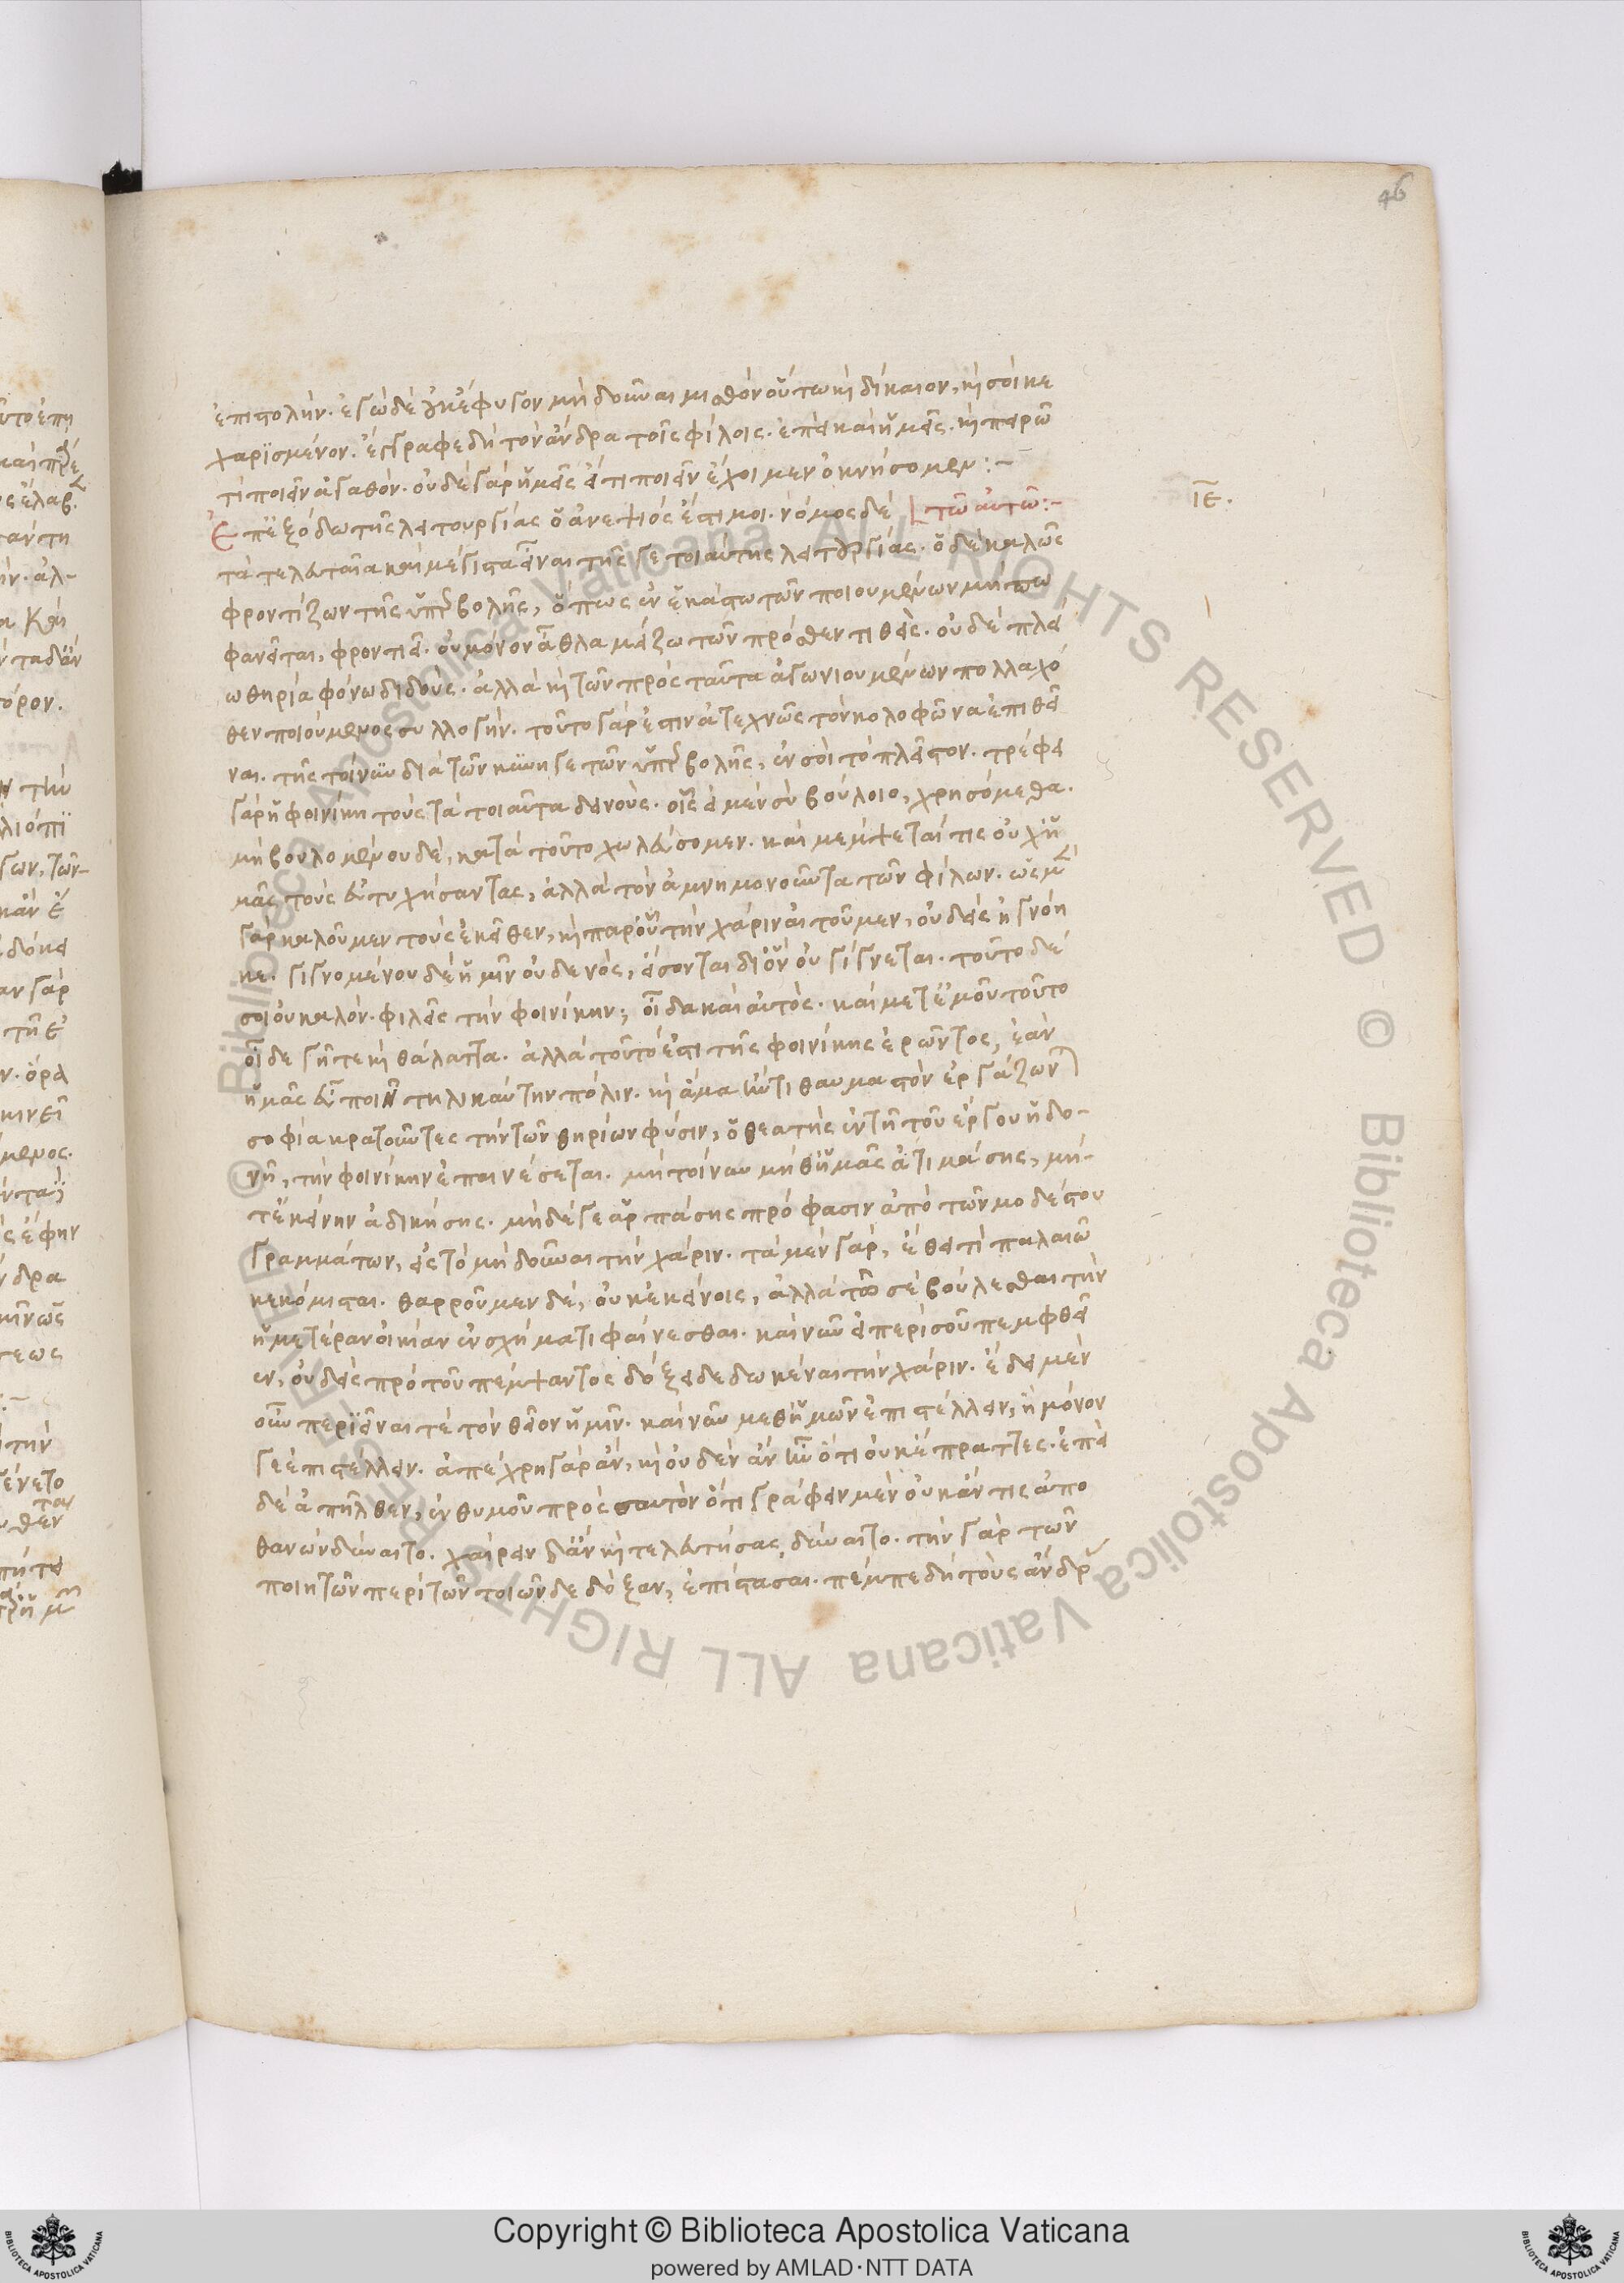 46
ἐπιστολήν. ἐγὼ δὲ οὐκ ἔφυγον μὴ δοῦναι μισθὸν οὕτω καὶ δίκαιον, καὶ σοὶ κε
χαρισμένον. ἔγγραφε δὴ τὸν ἄνδρα τοῖς φίλοις. ἐπεὶ καὶ ἡμεῖς. καὶ πειρῶ
τι ποιεῖν ἀγαθόν. οὐδὲ γὰρ ἡμεῖς ὅ τι ποιεῖν ἔχοιμεν ὀκνήσομεν:~
Ἐπ' ἐξόδω τῆς λειτουργίας ὁ ἀνεψιός ἐστί μοι. νόμος δὲ τῶ αὐτῶ:~
ΙΕ.
τὰ τελευταῖα καὶ μέγιστα εἶναι τῆς γε τοιαύτης λειτουργίας. ὁ δὲ καλῶς
φροντίζων τῆς ὑπερβολῆς, ὅπως ἐν ἑκάστω τῶν ποιουμένων μή πω
φανεῖται, φροντιεῖ. οὐ μόνον ἆθλα μείζω τῶν πρόσθεν τιθείς. οὐδὲ πλεί
ω θηρία φόνω διδούς. ἀλλὰ καὶ τῶν πρὸς ταῦτα ἀγωνιουμένων πολλαχό
θεν ποιούμενος συλλογήν. τοῦτο γάρ ἐστιν ἀτεχνῶς τὸν κολοφῶνα ἐπιθεῖ
ναι. τῆς τοίνυν διὰ τῶν κυνηγετῶν ὑπερβολῆς, ἐν σοὶ τὸ πλεῖστον. τρέφει
γὰρ ἡ φοινίκη τοὺς τὰ τοιαῦτα δεινούς. οἷς εἰ μὲν σὺ βούλοιο, χρησόμεθα.
μὴ βουλομένου δὲ, κατὰ τοῦτο χωλεύσομεν. καὶ μέμψεταί τις οὐχ ἡ
μᾶς τοὺς ἀτυχήσαντας, ἀλλὰ τὸν ἀμνημονοῦντα τῶν φίλων. ὡς μὲν
γὰρ καλοῦμεν τοὺς ἐκεῖθεν, καὶ παρ' οὗ τὴν χάριν αἰτοῦμεν, οὐδεὶς ἠγνόη
κε. γιγνομένου δὲ ἡμῖν οὐδενός, εἴσονται δι' ὃν οὐ γίγνεται. τοῦτο δέ
σοι οὐ καλόν. φιλεῖς τὴν φοινίκην; οἶδα καὶ αὐτός. καὶ μετ' ἐμοῦ τοῦτο
οἶδε γῆ τε καὶ θάλαττα. ἀλλὰ τοῦτό ἐστι τῆς φοινίκης ἐρῶντος, ἐὰν
ἡμᾶς εὖ ποιῇ τηλικαύτην πόλιν. καὶ ἅμα ὧν τι θαυμαστὸν ἐργάζων
σοφία κρατοῦντες τὴν τῶν θηρίων φύσιν, ὁ θεατὴς ἐν τῇ τοῦ ἔργου ἡδο-
νῇ, τὴν φοινίκην ἐπαινέσεται. μὴ τοίνυν μήθ' ἡμᾶς ἀτιμάσης, μή-
τ' ἐκείνην ἀδικήσης. μηδέ γε ἁρπάσης πρόφασιν ἀπὸ τῶν μοδέστου
γραμμάτων, εἰς τὸ μὴ δοῦναι τὴν χάριν. τὰ μὲν γὰρ, ἔθει τῷ παλαιῶ
κεκόμισται. θαρροῦμεν δὲ, οὐκ ἐκείνοις, ἀλλὰ τῶ σὲ βούλεσθαι τὴν
ἡμετέραν οἰκίαν ἐν σχήματι φαίνεσθαι. καὶ νῦν εἰ περίσου πεμφθεῖ
εν, οὐδεὶς πρὸ τοῦ πέμψαντος δόξει δεδωκέναι τὴν χάριν. ἔδει μὲν
οὖν περιεῖναί τε τὸν θεῖον ἡμῖν. καὶ νῦν μεθ' ἡμῶν ἐπιστέλλειν, ἢ μόνον
γε ἐπιστέλλειν. ἀπέχρη γὰρ ἂν, καὶ οὐδὲν ἂν ἦν ὅ τι οὐκ ἔπραττες. ἐπεὶ
δὲ ἀπῆλθεν, ἐνθυμοῦ πρὸς σαυτὸν ὅτι γράφειν μὲν οὐκ ἄν τις ἀπο
θανὼν δύναιτο. χαίρειν δ' ἂν καὶ τελευτήσας δύναιτο. τὴν γὰρ τῶν
ποιητῶν περὶ τῶν τοιῶνδε δόξαν, ἐπίστασαι. πέμπε δὴ τοὺς ἄνδρ
Copyright © Biblioteca Apostolica Vaticana
powered by AMLAD·NTT DATA